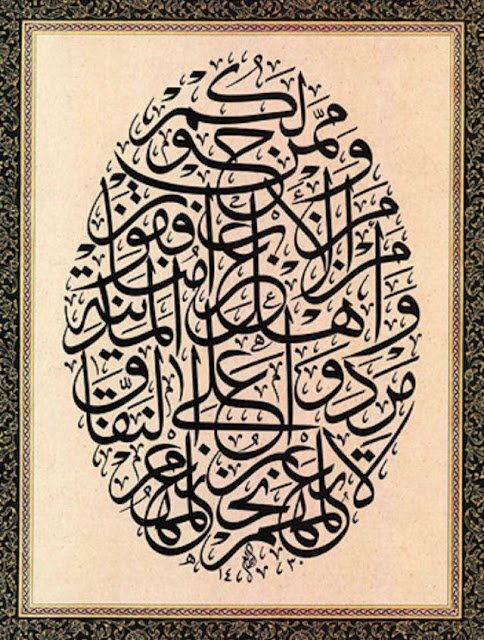 وَمِمَّنْ حَوْلَكُم
مِنَ الْأَعْرَابِ مُنَافِقُونَ
وَمِنْ أَهْلِ الْمَدِينَةِ
مَرَدُوا عَلَى النِّفَاقِ
لَا تَعْلَمُهُمْ نَحْنُ نَعْلَمُهُمْ
١٤٣٠ هـ